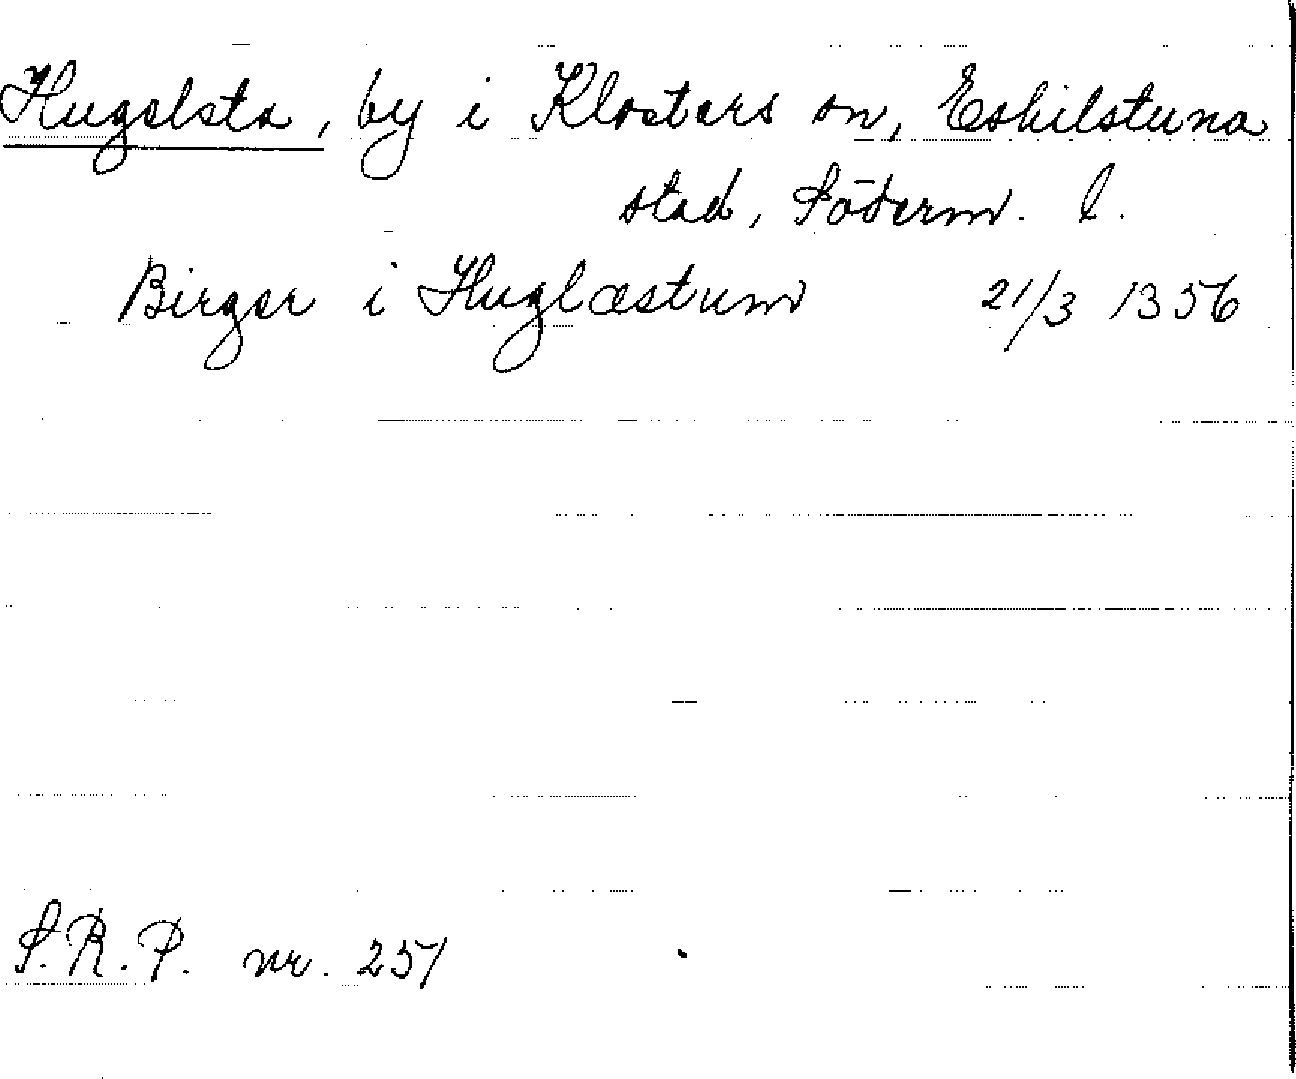 Hugelsta, by i Klosters sn, Eskilstuna
stad, Söderm. l.
Birger i Huglæstum 21/3 1356
S.R.P. nr. 257